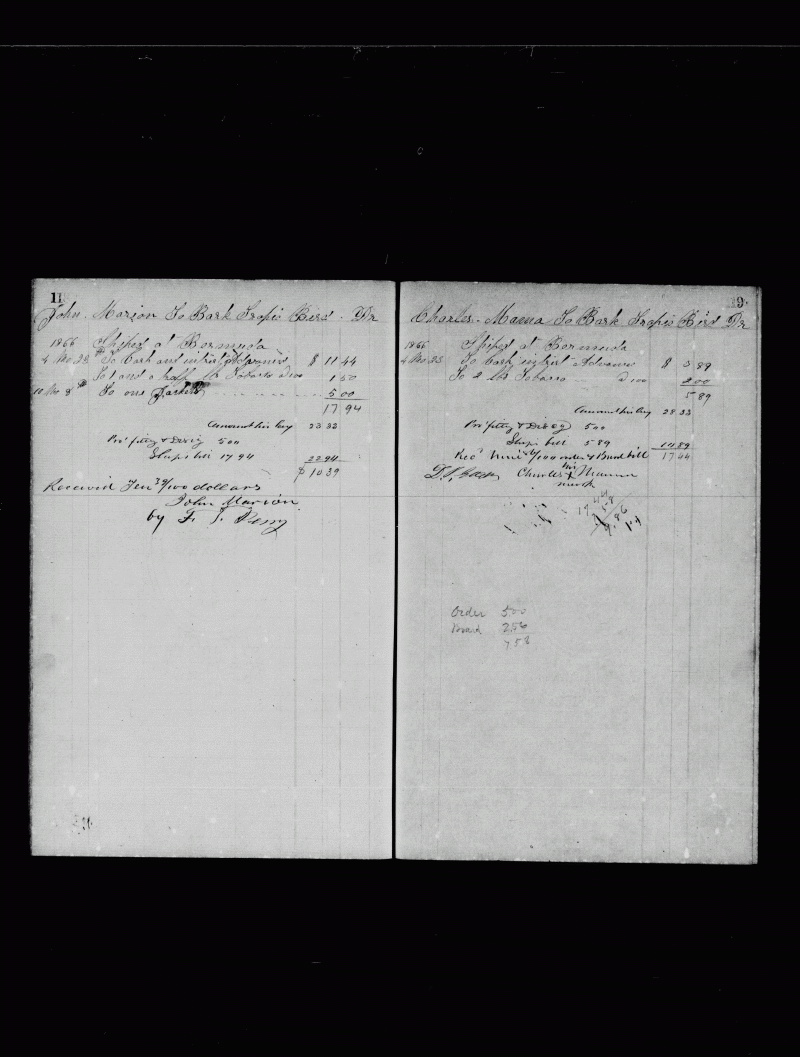 11
John. Marion To Bark Tropic Bird. Dr
1866 Shiped at Bormuda
4 Mo. 23 To Cash and Advanced $ 11 44
To 1 and a half lb Tobacco 1 50
10 Mo 8 To one Jacket 5 00
17 94
Amount his Lay 33 33
fitting & Disg 500
Ships bill 17 94 22 94
$ 10 39
Received Ten 39/100 dollars
John Marion
by F. J. Perry
19
Charles. Mama To Bark Tropic Bird Dr
1866 Shiped at Bormuda
4 Mo. 23 To Cash Advance $ 3 89
To 2 lbs Tobacco 2 00
5 89
Amount his Lay 28 33
fitting & Disg 500
Ships bill 5 89 10 89
Rec'd Nine /100 order & Board bill 17 44
Charles his X mark
Order 500
Board 256
756